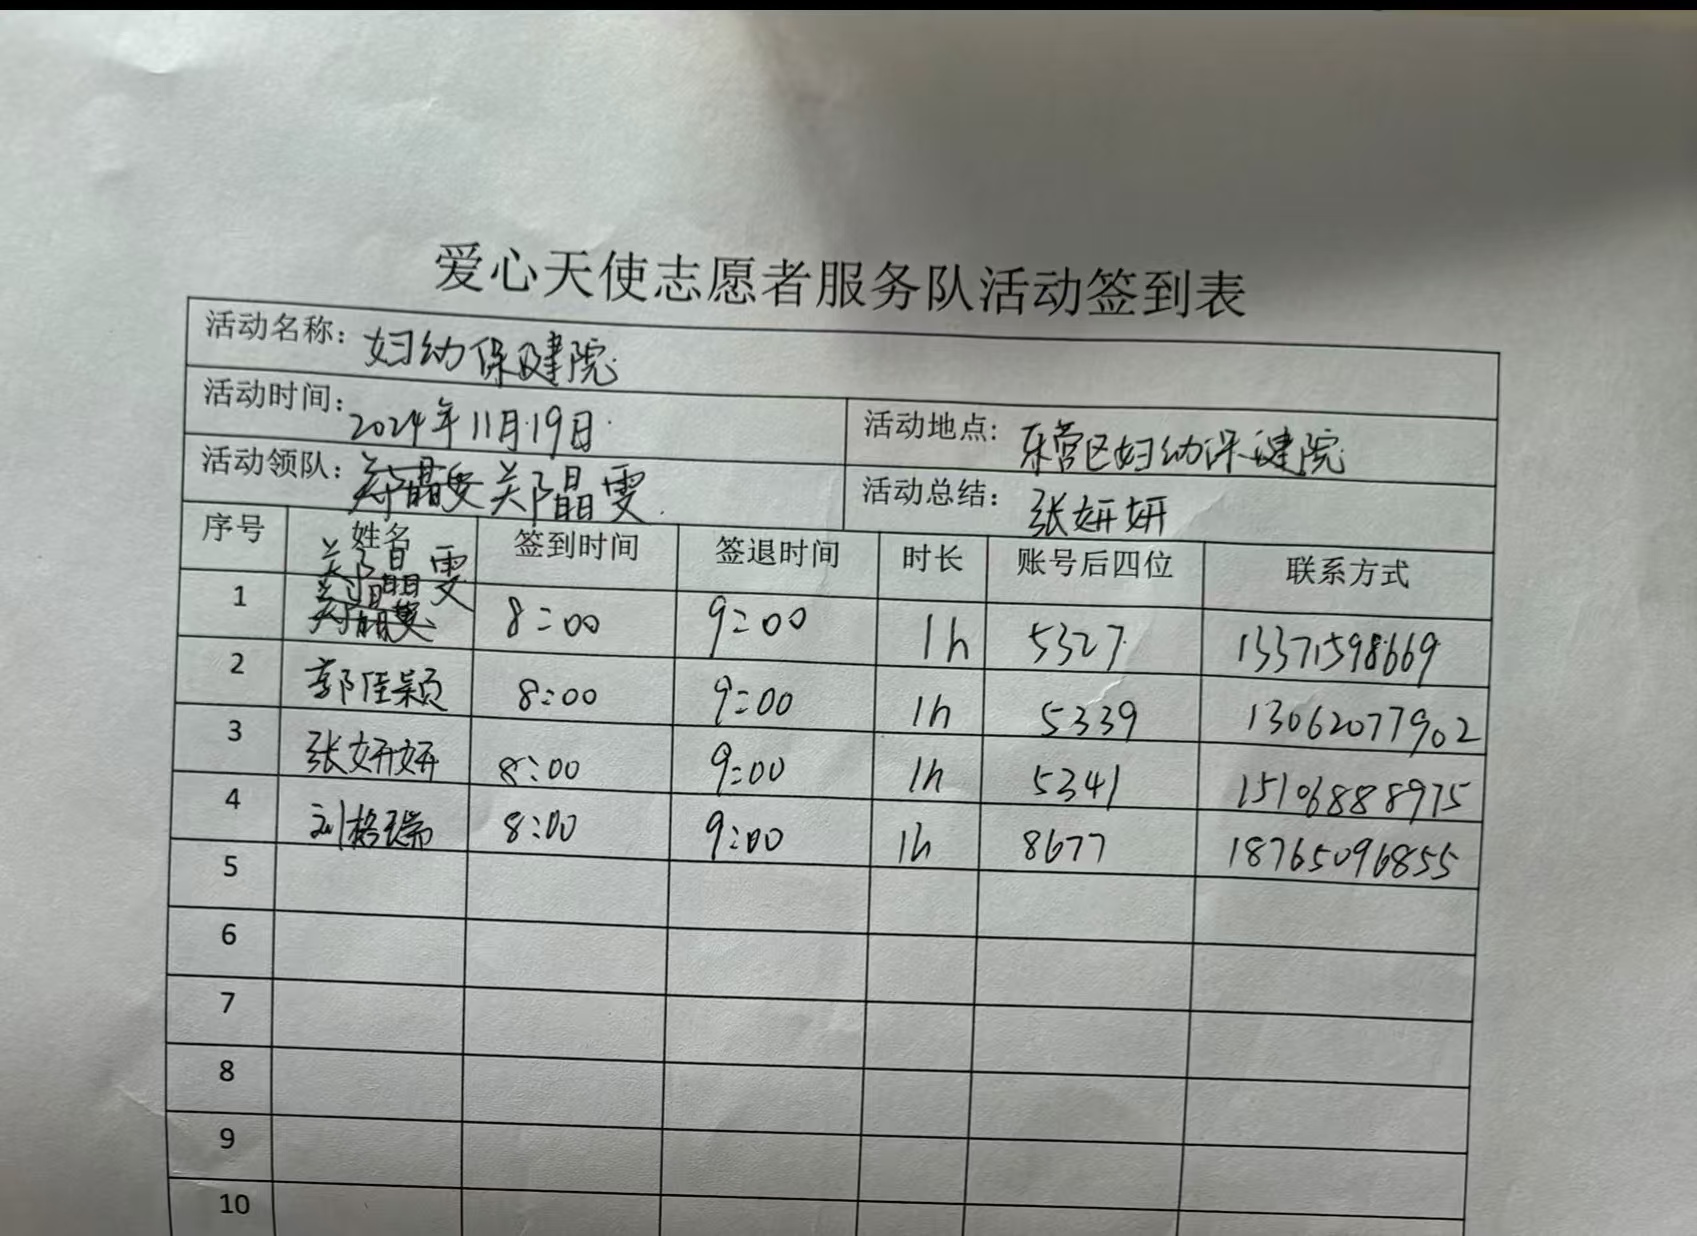 爱心天使志愿者服务队活动签到表
活动名称：妇幼保健院
活动时间：2024年11月19日 活动地点：东营区妇幼保健院
活动领队：郑晶雯 活动总结：张妍妍
序号 姓名 签到时间 签退时间 时长 账号后四位 联系方式
1 郑晶雯 8:00 9:00 1h 5327 13371598669
2 郭佳颖 8:00 9:00 1h 5339 13062077902
3 张妍妍 8:00 9:00 1h 5341 15106888975
4 刘格瑞 8:00 9:00 1h 8677 18765096855
5
6
7
8
9
10